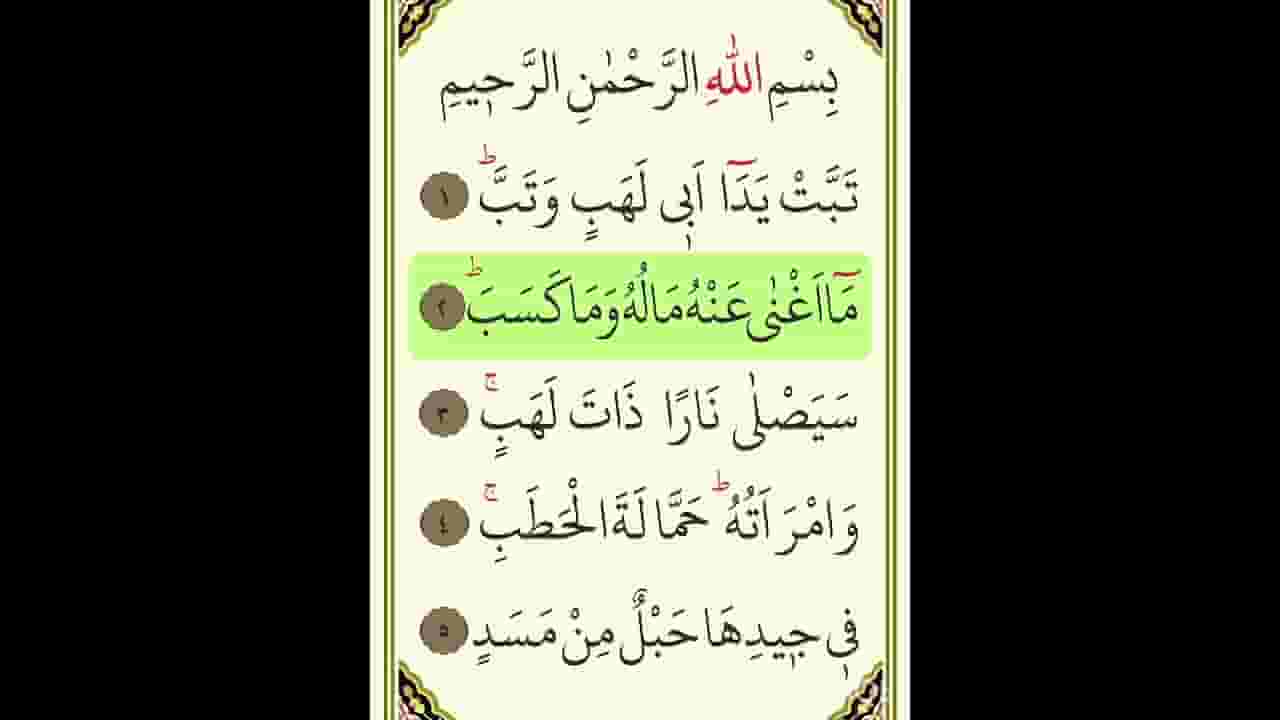 بِسْمِ اللّٰهِ الرَّحْمٰنِ الرَّحٖيمِ
تَبَّتْ يَدَٓا اَبٖى لَهَبٍ وَتَبَّؕ ١
مَٓا اَغْنٰى عَنْهُ مَالُهُ وَمَا كَسَبَؕ ٢
سَيَصْلٰى نَارًا ذَاتَ لَهَبٍۚ ٣
وَامْرَاَتُهُؕ حَمَّالَةَ الْحَطَبِۚ ٤
فٖى جٖيدِهَا حَبْلٌ مِنْ مَسَدٍ ٥